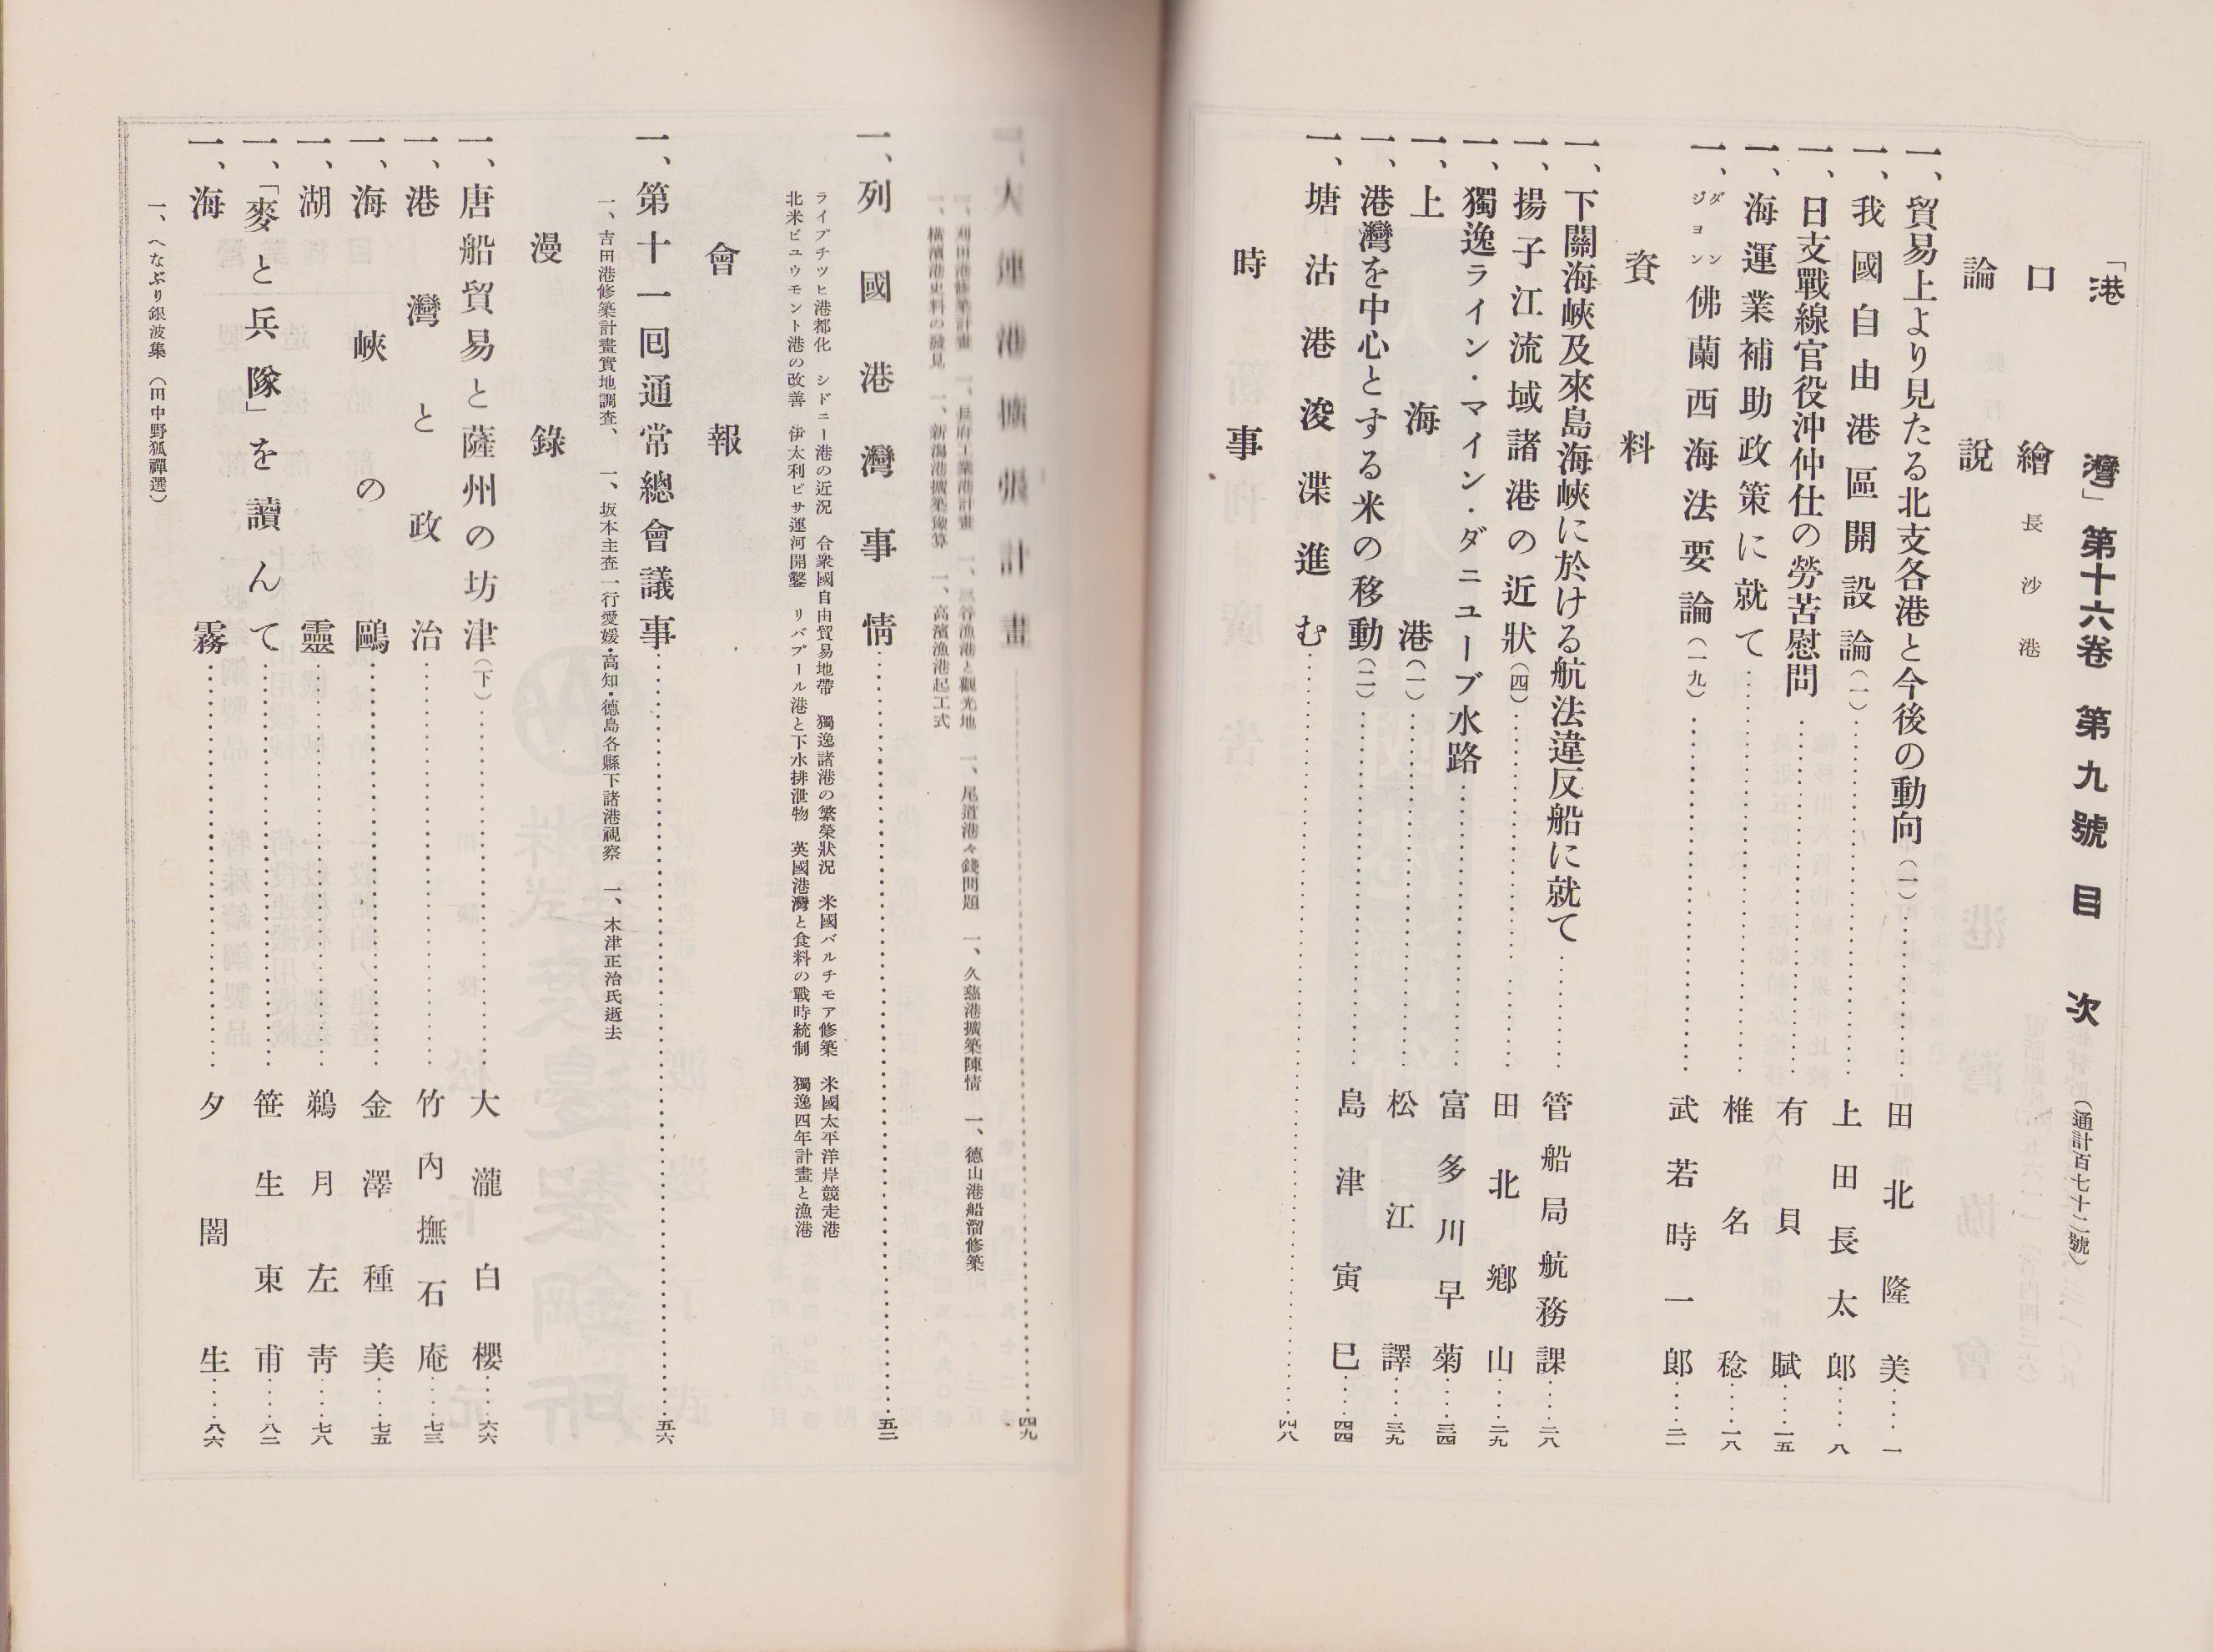 「港灣」第十六卷 第九號 目次 （通計百七十二號）
口繪 長沙港
論說
一、貿易上より見たる北支各港と今後の動向（一）……田北隆美……一
一、我國自由港區開設論（一）……上田長太郎……八
一、日支戰線官役沖仲仕の勞苦慰問……有貝賦……一五
一、海運業補助政策に就て……椎名稔……一八
一、ダンジョン佛蘭西海法要論（一九）……武若時一郎……二二
資料
一、下關海峽及來島海峽に於ける航法違反船に就て……管船局航務課……二八
一、揚子江流域諸港の近狀（四）……田北鄕山……二九
一、獨逸ライン・マイン・ダニューブ水路……富多川早菊……三四
一、上海港（一）……松江譯……三九
一、港灣を中心とする米の移動（二）……島津寅巳……四四
一、塘沽港浚渫進む……四八
時事
一、大連港擴張計畫……四九
一、刈田港修築計畫 一、長府工業港計畫 一、漁港と觀光地 一、尾道港々錢問題 一、久慈港擴築陳情 一、德山港船溜修築
一、橫濱港史料の發見 一、新潟港擴築豫算 一、高濱漁港起工式
一、列國港灣事情……五二
ライプチツヒ港都化 シドニー港の近況 合衆國自由貿易地帶 獨逸諸港の繁榮狀況 米國バルチモア修築 米國太平洋岸競走港
北米ビユウモント港の改善 伊太利ピサ運河開鑿 リバプール港と下水排泄物 英國港灣と食料の戰時統制 獨逸四年計畫と漁港
會報
一、第十一回通常總會議事……五六
一、吉田港修築計畫實地調査、 一、坂本主査一行愛媛・高知・德島各縣下諸港視察 一、木津正治氏逝去
漫錄
一、唐船貿易と薩州の坊津（下）……大瀧白櫻……六六
一、港灣と政治……竹內撫石庵……七三
一、海峽の鷗……金澤種美……七五
一、湖靈……鵜月左靑……七八
一、「麥と兵隊」を讀んで……笹生東甫……八二
一、海霧……夕闇生……八六
一、へなぶり銀波集（田中野狐禪選）